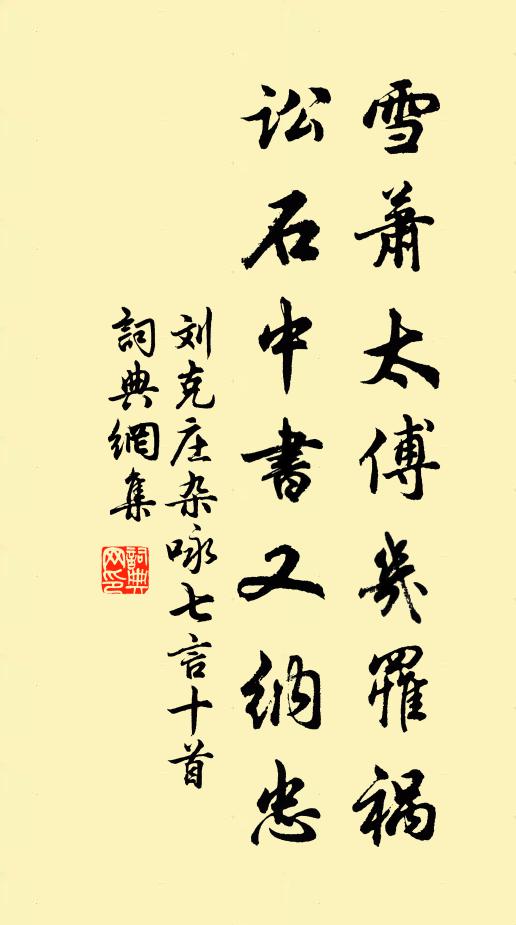 雪萧太傅几罹祸
讼石中書又纳忠
刘克庄杂咏七言十首
詞典網集
詞典网印